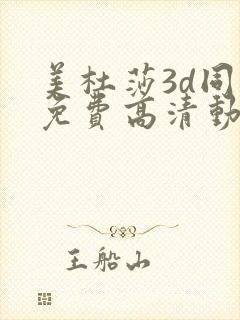 美杜莎3d同
免费高清動
王船山